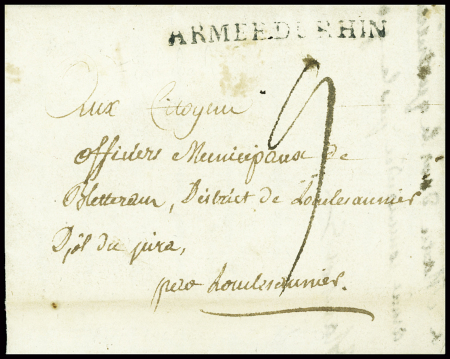 ARMEE DU RHIN
Aux Citoyens
officiers Municipaux de
Bletterans, District de Lonslesaunier
Dpt du jura,
par Lonslesaunier.
9